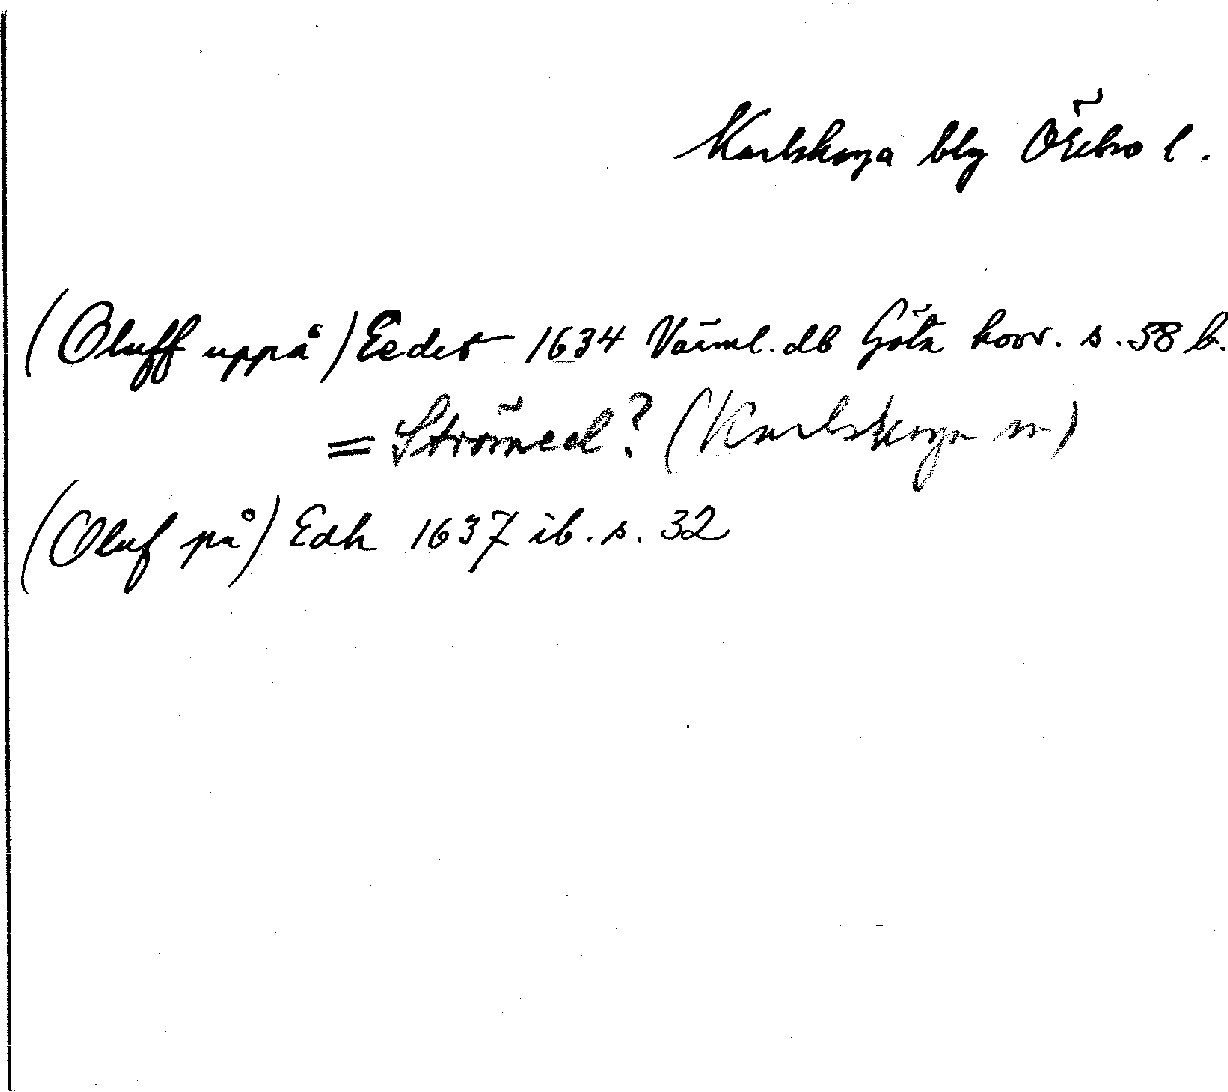 Karlskoga blg Örebro l.
(Oluff uppå) Eedet 1634 Värml. db Göta hovr. s. 58 b.
= Strömed? (Karlskoga sn)
(Oluf på) Edh 1637 ib. s. 32